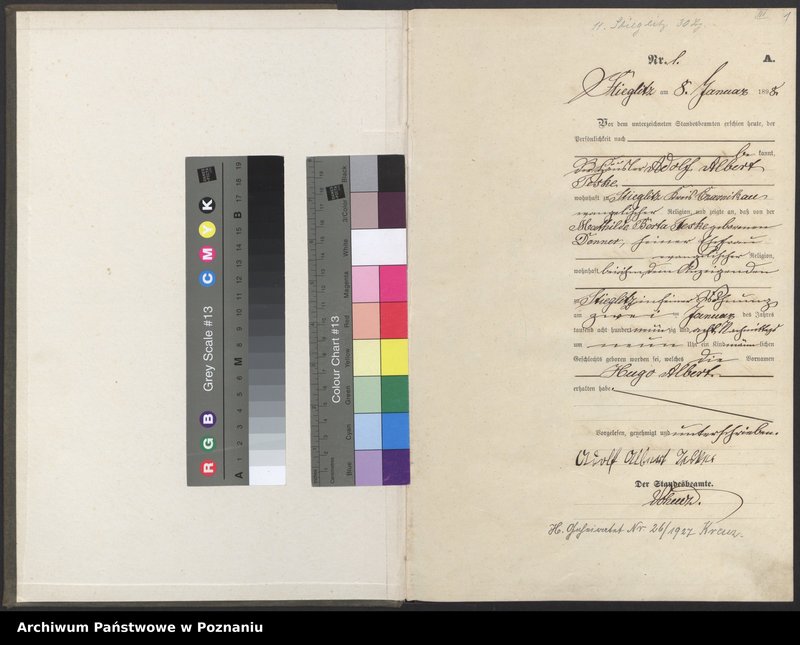 11. Stieglitz
III
1
Nr. 1.
A.
Stieglitz am 8. Januar 1898.
Vor dem unterzeichneten Standesbeamten erschien heute, der
Persönlichkeit nach
be kannt,
der Häusler Adolf Albert
Teske
wohnhaft in Stieglitz Kreis Czarnikau
evangelischer Religion, und zeigte an, daß von der
Mathilde Berta Teske geborenen
Donner, seiner Ehefrau
evangelischer Religion,
wohnhaft bei dem Anzeigenden
zu Stieglitz in seiner Wohnung
am zwei ten Januar des Jahres
tausend acht hundert neunzig und acht Nachmittags
um neun Uhr ein Kind männlichen
Geschlechts geboren worden sei, welches die Vornamen
Hugo Albert
erhalten habe.
Vorgelesen, genehmigt und unterschrieben.
Adolf Albert Teske
Der Standesbeamte.
H. Geheiratet Nr 26/1927 Kreuz.
Grey Scale #13
R G B C M Y K
A 1 2 3 4 5 6 M 8 9 10 11 12 13 14 15 B 17 18 19
Colour Chart #13
Blue Cyan Green Yellow Red Magenta White 3/Color Black
Archiwum Państwowe w Poznaniu